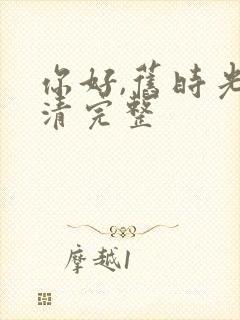 你好,舊時光
清完整
摩越1